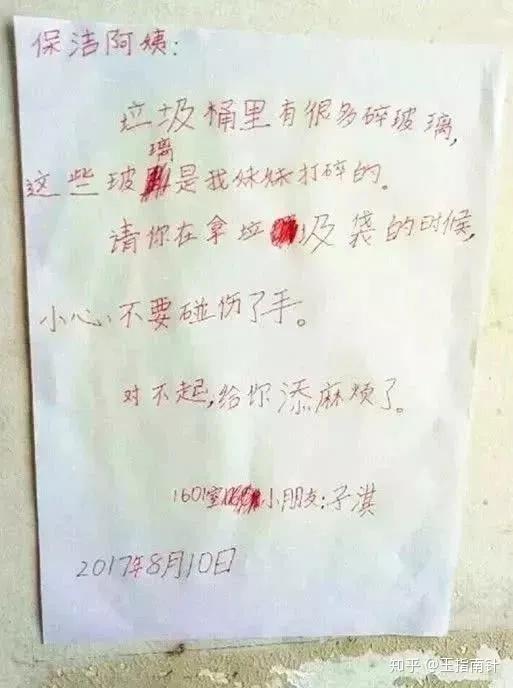 保洁阿姨:
垃圾桶里有很多碎玻璃,
这些玻璃是我妹妹打碎的。
请你在拿垃圾袋的时候,
小心、不要碰伤了手。
对不起,给你添麻烦了。
1601室小朋友:子淇
2017年8月10日
知乎 @王指南针